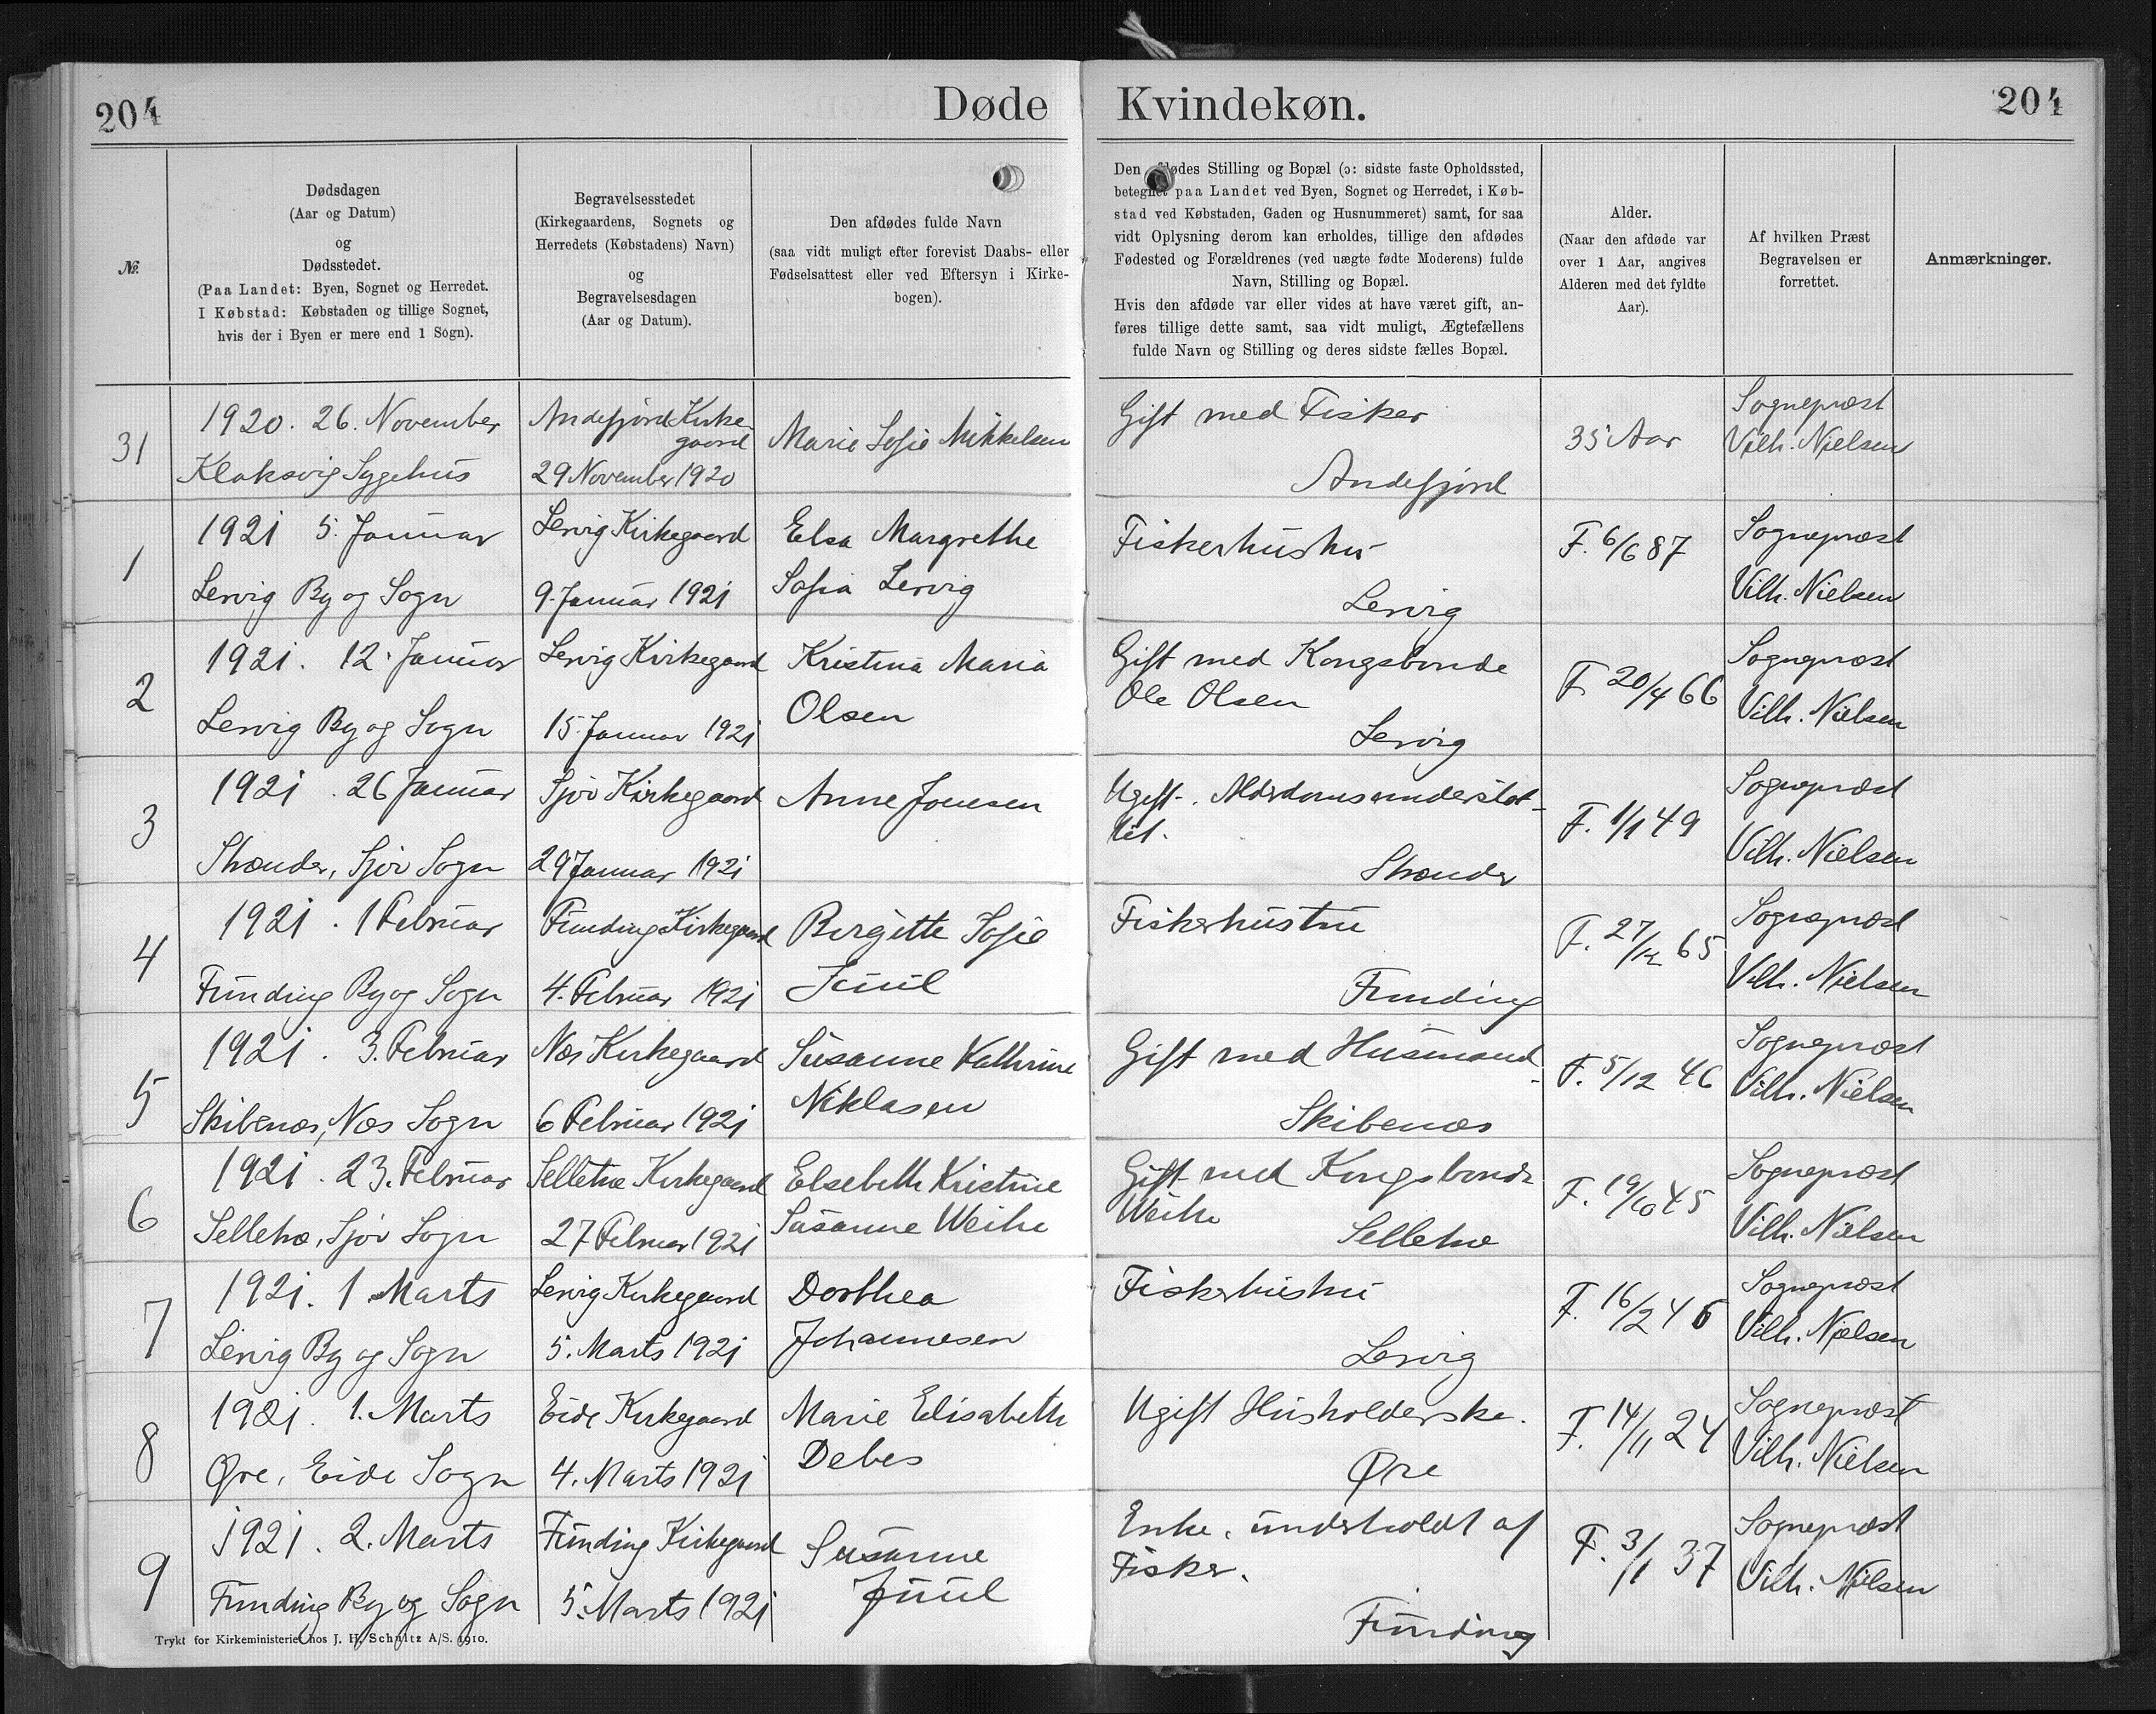 204
Døde
Kvindekøn.
204
№
Dødsdagen
(Aar og Datum)
og
Dødsstedet.
(Paa Landet: Byen, Sognet og Herredet.
I Købstad: Købstaden og tillige Sognet,
hvis der i Byen er mere end 1 Sogn).
Begravelsesstedet
(Kirkegaardens, Sognets og
Herredets (Købstadens) Navn)
og
Begravelsesdagen
(Aar og Datum).
Den afdødes fulde Navn
(saa vidt muligt efter forevist Daabs- eller
Fødselsattest eller ved Eftersyn i Kirke-
bogen).
Den afdødes Stilling og Bopæl (ɔ: sidste faste Opholdssted,
betegnet paa Landet ved Byen, Sognet og Herredet, i Køb-
stad ved Købstaden, Gaden og Husnummeret) samt, for saa
vidt Oplysning derom kan erholdes, tillige den afdødes
Fødested og Forældrenes (ved uægte fødte Moderens) fulde
Navn, Stilling og Bopæl.
Hvis den afdøde var eller vides at have været gift, an-
føres tillige dette samt, saa vidt muligt, Ægtefællens
fulde Navn og Stilling og deres sidste fælles Bopæl.
Alder.
(Naar den afdøde var
over 1 Aar, angives
Alderen med det fyldte
Aar).
Af hvilken Præst
Begravelsen er
forrettet.
Anmærkninger.
31
1920. 26. November
Klaksvig Sygehus
Andefjord Kirke-
gaard
29 November 1920
Marie Sofie Mikkelsen
Gift med Fisker
Andefjord
35 Aar
Sognepræst
Vilh. Nielsen
1
1921 5. Januar
Lervig By og Sogn
Lervig Kirkegaard
9. Januar 1921
Elsa Margrethe
Sofia Lervig
Fiskerhustru
Lervig
F. 6/6 87
Sognepræst
Vilh. Nielsen
2
1921. 12. Januar
Lervig By og Sogn
Lervig Kirkegaard
15. Januar 1921
Kristina Maria
Olsen
Gift med Kongsbonde
Ole Olsen
Lervig
F. 20/4 66
Sognepræst
Vilh. Nielsen
3
1921. 26 Januar
Strænder, Sjov Sogn
Sjov Kirkegaard
29 Januar 1921
Anne Joensen
Ugift. Alderdomsunderstøt-
tet.
Strænder
F. 1/1 49
Sognepræst
Vilh. Nielsen
4
1921. 1 Februar
Funding By og Sogn
Funding Kirkegaard
4. Februar 1921
Birgitte Sofie
Juul
Fiskerhustru
Funding
F. 27/12 65
Sognepræst
Vilh. Nielsen
5
1921. 3. Februar
Skibenæs, Næs Sogn
Næs Kirkegaard
6 Februar 1921
Susanne Kathrine
Niklasen
Gift med Husmand.
Skibenæs
F. 5/12 46
Sognepræst
Vilh. Nielsen
6
1921. 23. Februar
Selletræ, Sjov Sogn
Selletræ Kirkegaard
27 Februar 1921
Elsebeth Kristine
Susanne Weihe
Gift med Kongsbonde
Weihe
Selletræ
F. 19/10 45
Sognepræst
Vilh. Nielsen
7
1921. 1 Marts
Lervig By og Sogn
Lervig Kirkegaard
5. Marts 1921
Dorthea
Johannesen
Fiskerhustru
Lervig
F. 16/2 46
Sognepræst
Vilh. Nielsen
8
1921. 1. Marts
Øre, Eide Sogn
Eide Kirkegaard
4. Marts 1921
Marie Elisabeth
Debes
Ugift Husholderske.
Øre
F. 14/11 24
Sognepræst
Vilh. Nielsen
9
1921. 2. Marts
Funding By og Sogn
Funding Kirkegaard
5. Marts 1921
Susanne
Juul
Enke, underholdt af
Fisker.
Funding
F. 3/1 37
Sognepræst
Vilh. Nielsen
Trykt for Kirkeministeriet hos J. H. Schultz A/S. 1910.